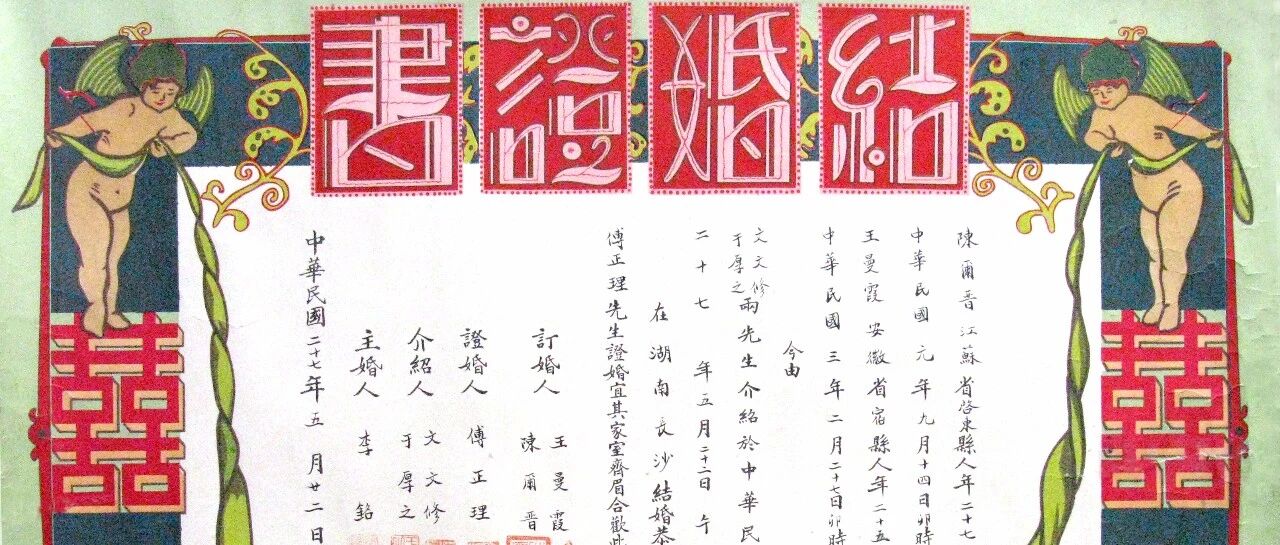 結婚證書
陳爾晋江蘇省啓東縣人年二十七
中華民國元年九月十四日卯時
王曼霞安徽省宿縣人年二十五
中華民國三年二月二十七日卯時
今由
文文修
于厚之
兩先生介紹於中華民
二十七年五月二十二日午
在湖南長沙結婚恭
傅正理先生證婚宜其家室齊眉合歡此
訂婚人 王曼霞
陳爾晋
證婚人 傅正理
介紹人 文文修
于厚之
主婚人 李銘
中華民國二十七年五月廿二日
囍
囍